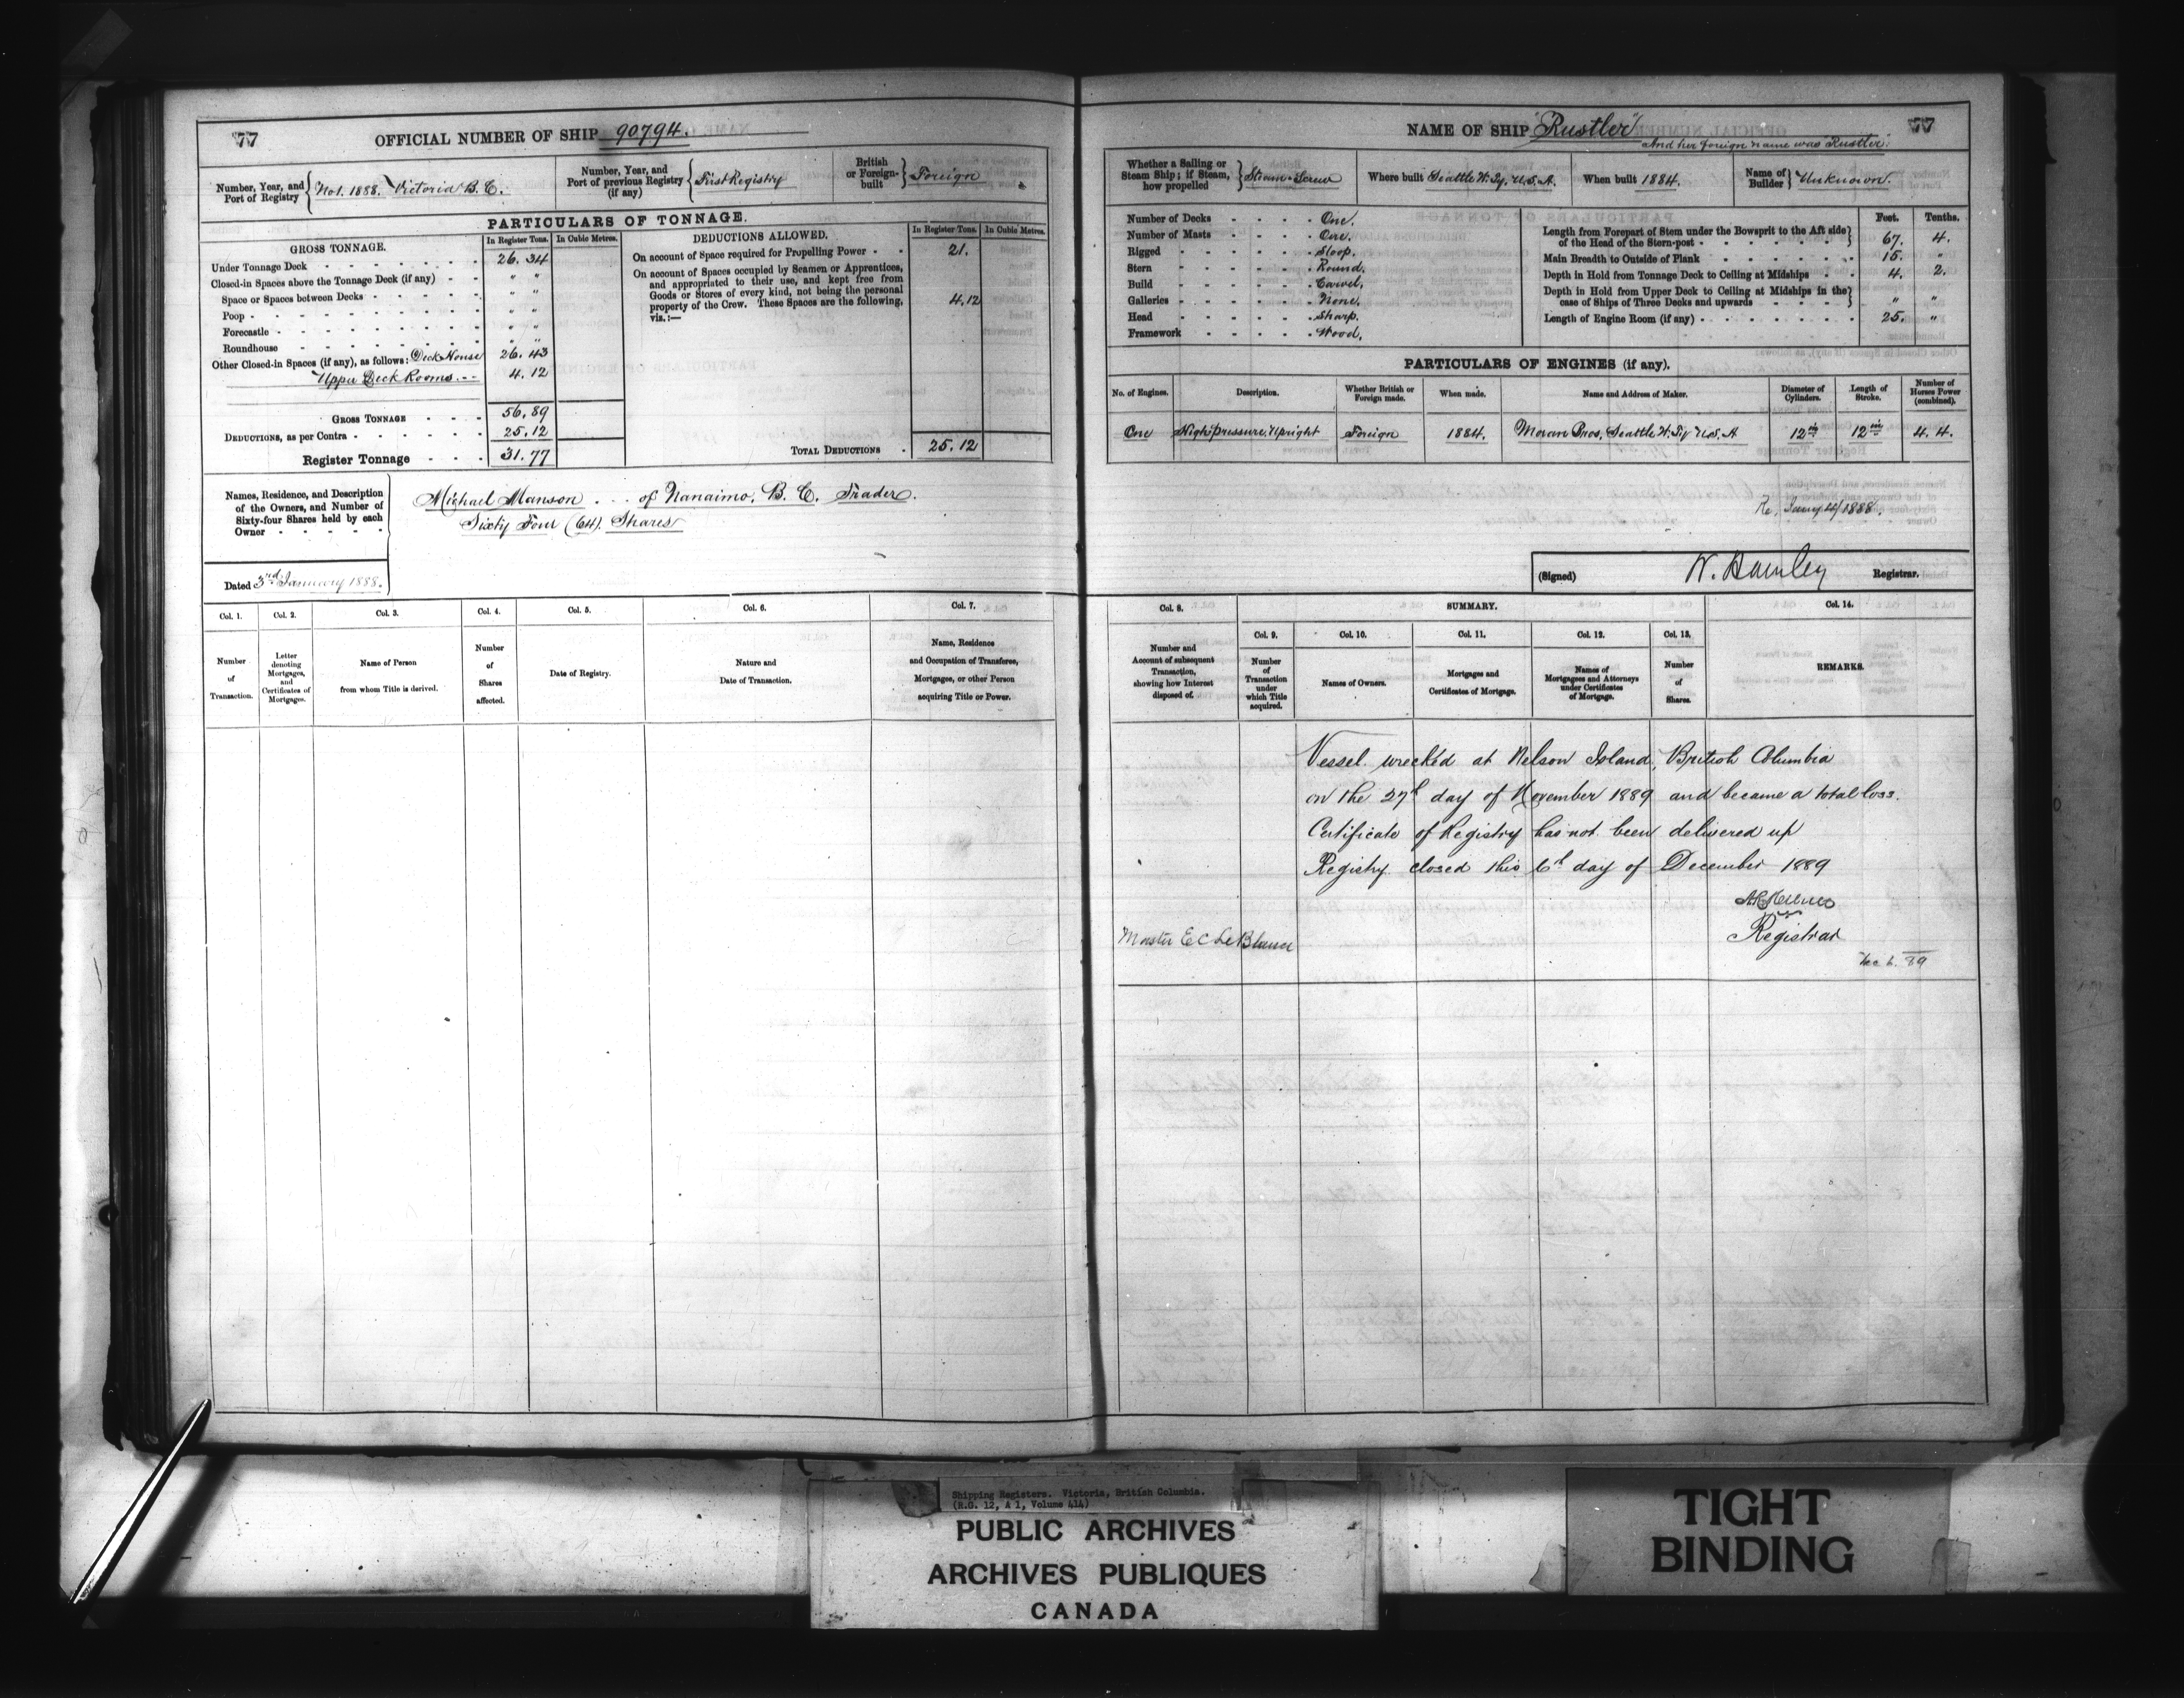 77 OFFICIAL NUMBER OF SHIP 90794.
Number, Year, and Port of Registry { No 1. 1888. Victoria B.C.
Number, Year, and Port of previous Registry (if any) { First Registry
British or Foreign-built } Foreign
PARTICULARS OF TONNAGE.
GROSS TONNAGE. In Register Tons. In Cubic Metres.
Under Tonnage Deck 26.34
Closed-in Spaces above the Tonnage Deck (if any) " "
Space or Spaces between Decks " "
Poop " "
Forecastle " "
Roundhouse " "
Other Closed-in Spaces (if any), as follows: Deck House 26.43
Upper Deck Rooms. 4.12
GROSS TONNAGE 56.89
DEDUCTIONS, as per Contra 25.12
Register Tonnage 31.77
DEDUCTIONS ALLOWED. In Register Tons. In Cubic Metres.
On account of Space required for Propelling Power 21.
On account of Spaces occupied by Seamen or Apprentices,
and appropriated to their use, and kept free from
Goods or Stores of every kind, not being the personal
property of the Crew. These Spaces are the following, 4.12
viz.:—
TOTAL DEDUCTIONS 25.12
Names, Residence, and Description
of the Owners, and Number of
Sixty-four Shares held by each
Owner
Michael Manson . . . of Nanaimo, B.C. Trader.
Sixty Four (64). Shares
Dated 3rd January 1888.
Col. 1. Col. 2. Col. 3. Col. 4. Col. 5. Col. 6. Col. 7.
Number of Transaction.
Letter denoting Mortgages, and Certificates of Mortgages.
Name of Person from whom Title is derived.
Number of Shares affected.
Date of Registry.
Nature and Date of Transaction.
Name, Residence and Occupation of Transferee, Mortgages, or other Person acquiring Title or Power.
NAME OF SHIP "Rustler" 77
And her foreign name was "Rustler".
Whether a Sailing or Steam Ship; if Steam, how propelled } Steam-Screw
Where built Seattle W. Ty. U.S.A.
When built 1884.
Name of Builder } Unknown.
Number of Decks One.
Number of Masts One.
Rigged Sloop.
Stern Round.
Build Carvel.
Galleries None.
Head Sharp.
Framework Wood.
Feet. Tenths.
Length from Forepart of Stem under the Bowsprit to the Aft side
of the Head of the Stern-post 67. 4.
Main Breadth to Outside of Plank 15. "
Depth in Hold from Tonnage Deck to Ceiling at Midships 4. 2.
Depth in Hold from Upper Deck to Ceiling at Midships in the
case of Ships of Three Decks and upwards " "
Length of Engine Room (if any) 25. "
PARTICULARS OF ENGINES (if any).
No. of Engines. Description. Whether British or Foreign made. When made. Name and Address of Maker. Diameter of Cylinders. Length of Stroke. Number of Horses Power (combined).
One High pressure, Upright Foreign 1884. Moran Bros, Seattle W. Ty. U.S. A 12 in 12 in 4. 4.
(Signed) W. Hamley Registrar.
Col. 8. SUMMARY. Col. 14.
Col. 9. Col. 10. Col. 11. Col. 12. Col. 13.
Number and Account of subsequent Transaction, showing how Interest disposed of.
Number of Transaction under which Title acquired.
Names of Owners.
Mortgages and Certificates of Mortgage.
Names of Mortgagees and Attorneys under Certificates of Mortgage.
Number of Shares.
REMARKS.
Vessel wrecked at Nelson Island, British Columbia
on the 27th day of November 1889 and became a total loss.
Certificate of Registry has not been delivered up
Registry closed this 6th day of December 1889
Registrar
Master E C Le Blance
Dec 6. 89
Shipping Registers. Victoria, British Columbia.
(R.G. 12, A 1, Volume 414)
PUBLIC ARCHIVES
ARCHIVES PUBLIQUES
CANADA
TIGHT
BINDING